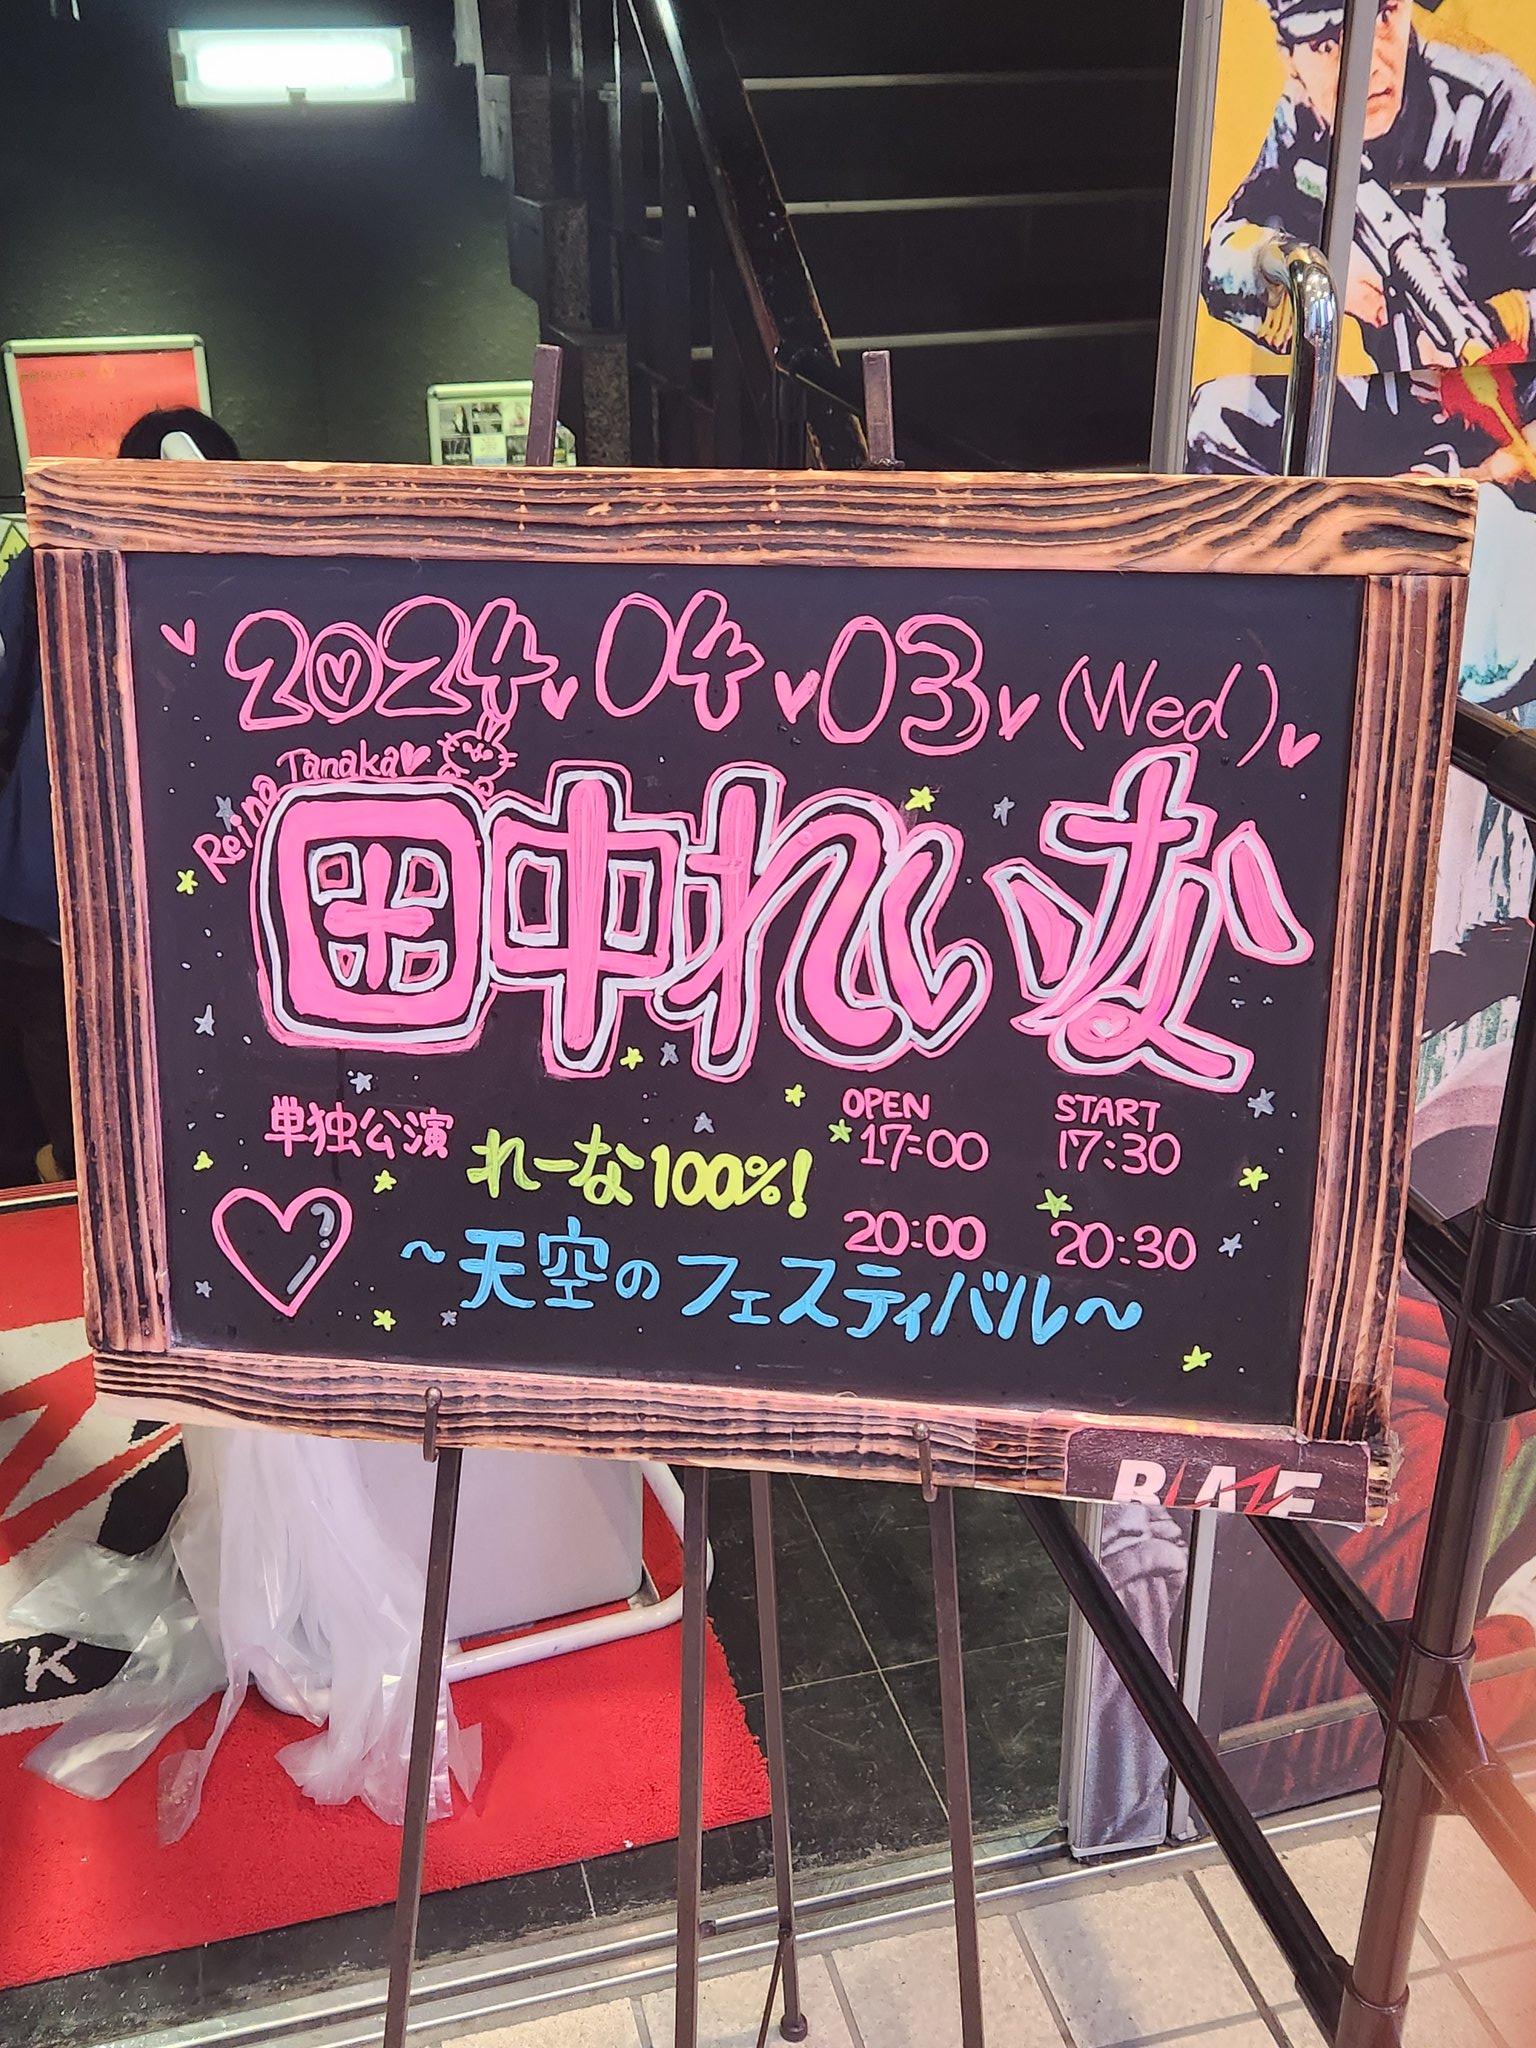 2024.04.03 (Wed)
Reina Tanaka
田中れいな
単独公演
れーな100%!
OPEN START
17:00 17:30
20:00 20:30
~天空のフェスティバル~
BLAZE
K